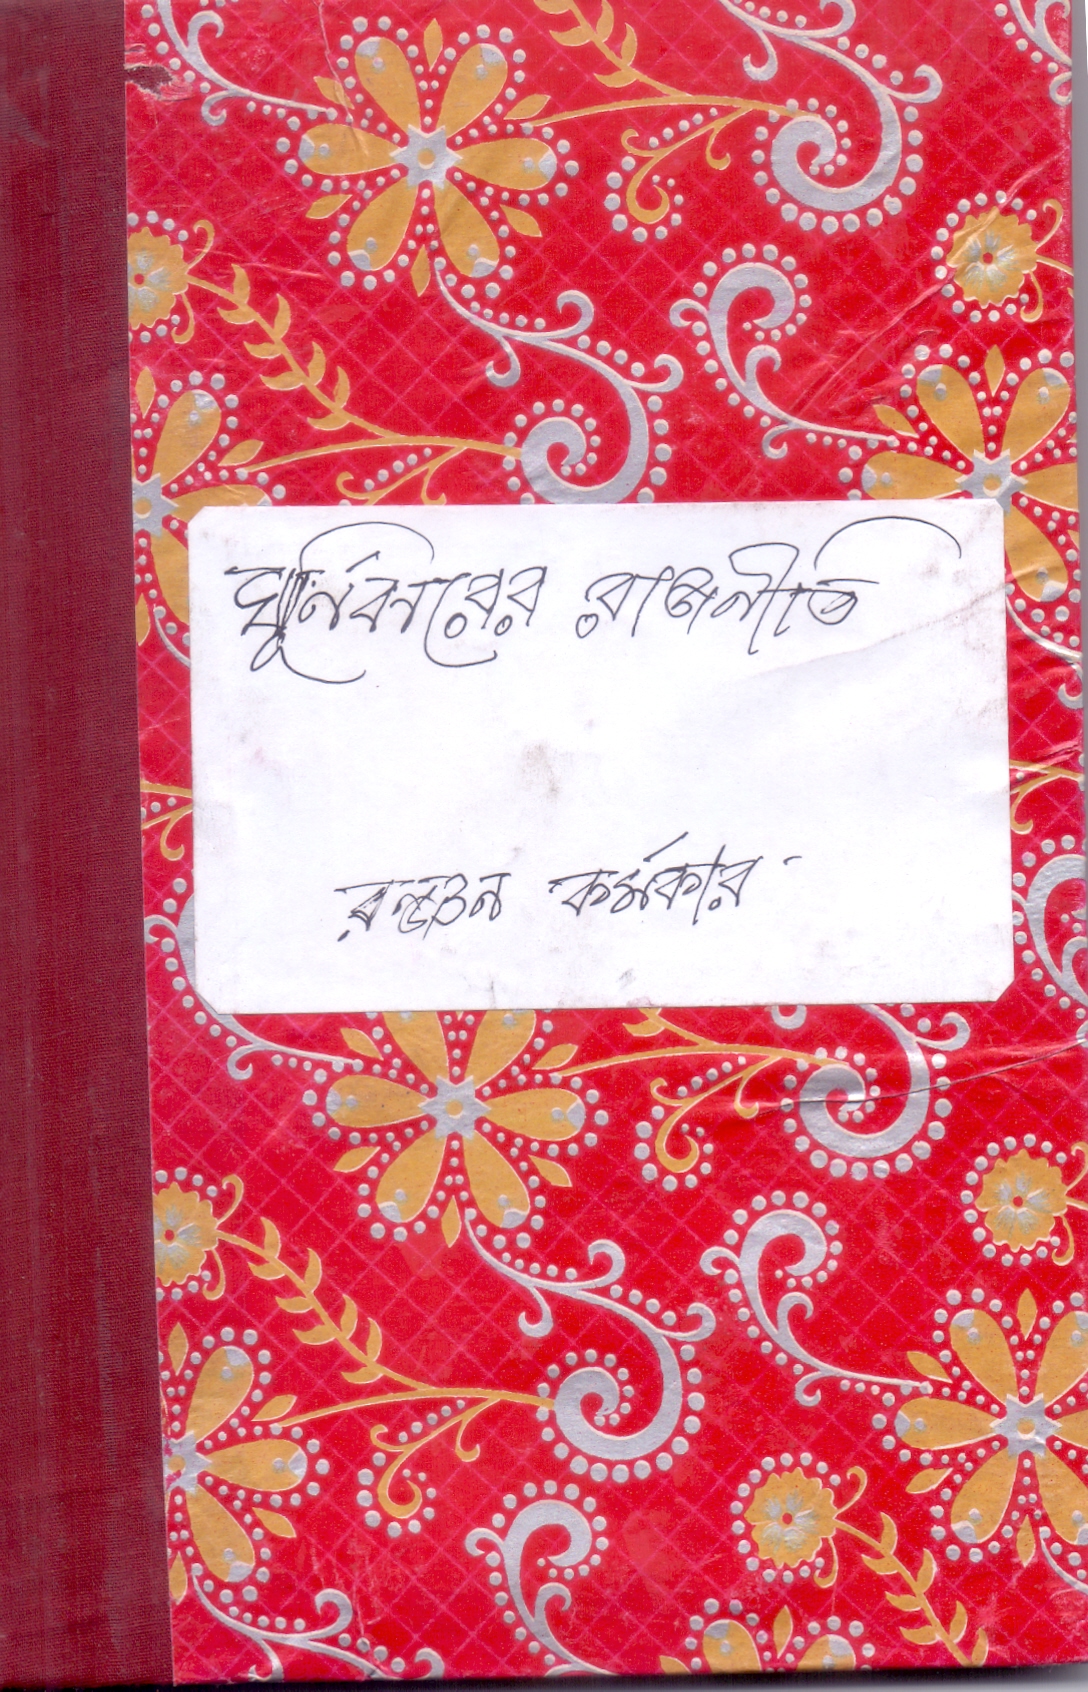 ঘূর্নিবারের রাজনীতি
রন্জন কর্মকার